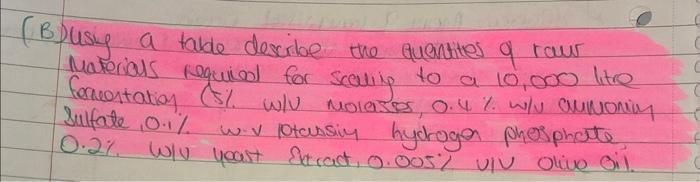 (B) using a table describe the quantites of raw
Materials required for scaling to a 10,000 litre
fermentation (5% w/v molasses, 0.4% w/v ammonium
Sulfate, 0.1% w.v potassium hydrogen phosphate
0.2% w/v yeast Extract, 0.005% v/v Olive Oil.